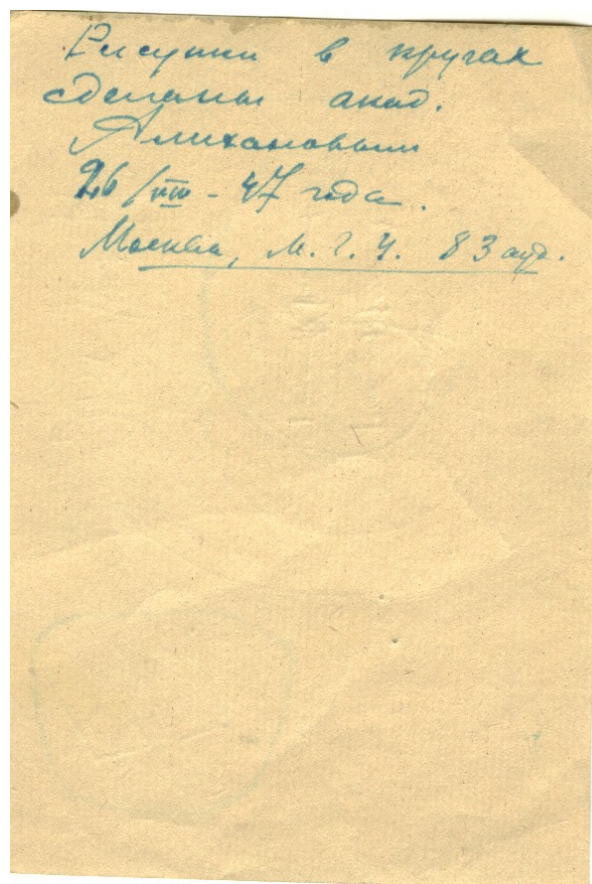 Рисунки в кругах
сделаны акад.
Алихановым
26/VIII - 47 года.
Москва, М. Г. У. 83 ауд.